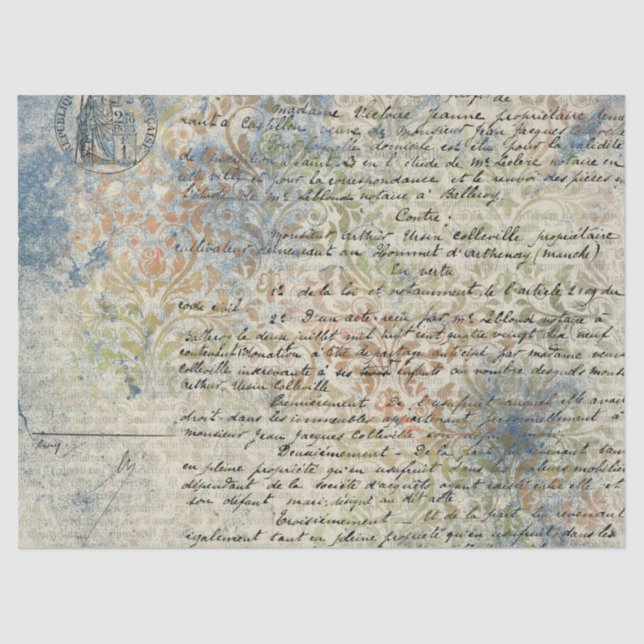 RÉPUBLIQUE FRANÇAISE
2/10
EN SUS
madame Victoire Jeanne propriétaire
à Castillon veuve de monsieur Jean Jacques Colleville
domicile est élu pour la validité
en l'étude de Me Leclère notaire en
pour la correspondance et le renvoi des pièces en
l'étude de Me Leblond notaire à Balleroy.
Contre
monsieur Arthur Ursin Colleville propriétaire
cultivateur demeurant au Hommet d'Arthenay (manche)
En vertu
1º de la loi et notamment de l'article 2109 du
code civil
2º D'un acte reçu par Me Leblond notaire à
Balleroy le douze juillet mil huit cent quatre vingt dix neuf
contenant Donation à titre de partage anticipé par madame veuve
Colleville à ses trois enfants au nombre desquels
Arthur Ursin Colleville
Premièrement - De l'usufruit auquel elle avait
droit dans les immeubles appartenant personnellement à
monsieur Jean Jacques Colleville son
Deuxièmement - De la part lui revenant tant
en pleine propriété qu'en usufruit dans les valeurs mobilières
dépendant de la société d'acquêts ayant existé entre elle et
son défunt mari, désigné au dit acte
Troisièmement - Et de la part lui revenant
également tant en pleine propriété qu'en usufruit dans les